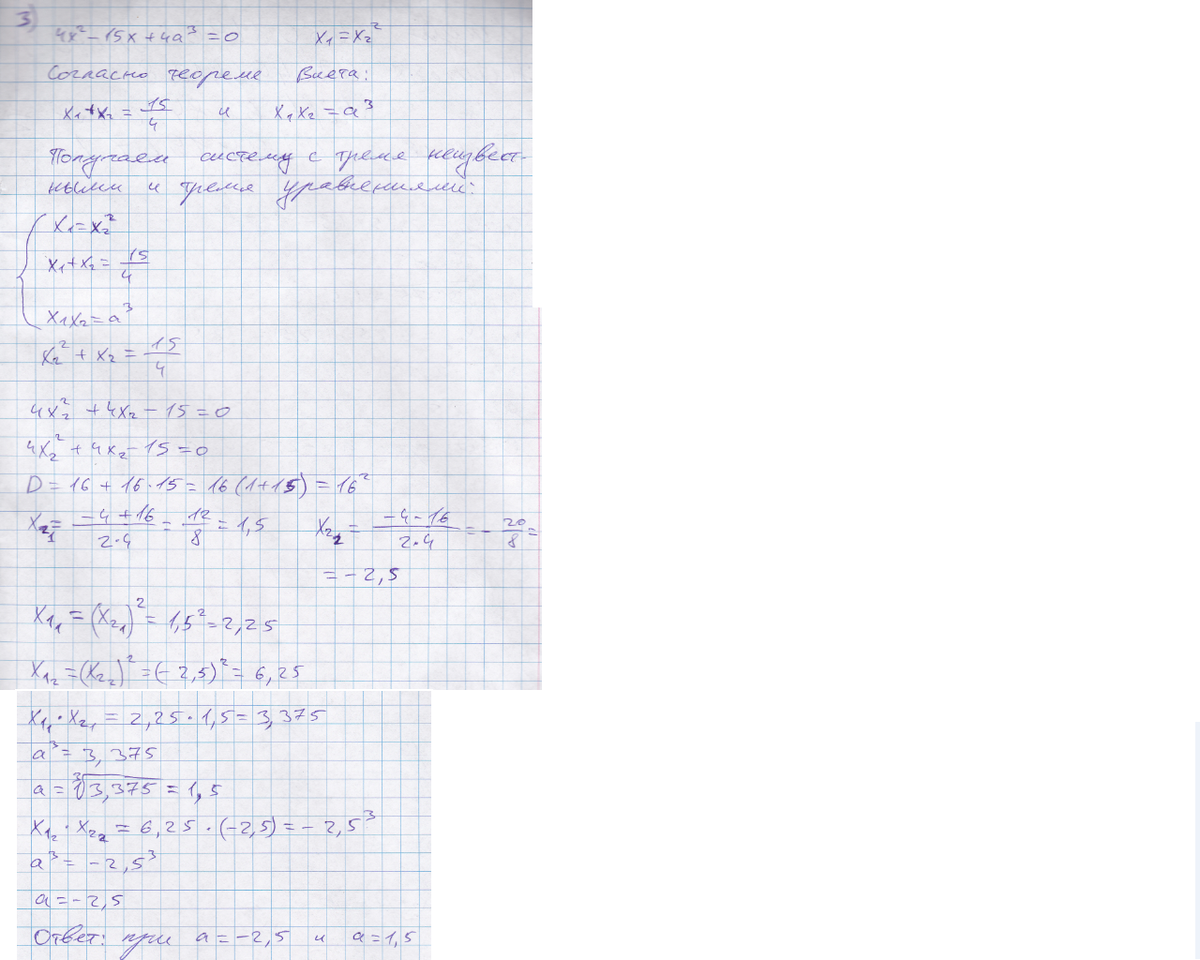 3)
4x² - 15x + 4a³ = 0    x₁ = x₂²
Согласно теореме Виета:
x₁ + x₂ = 15/4  и  x₁x₂ = a³
Получаем систему с тремя неизвест-
ными и тремя уравнениями:
{ x₁ = x₂²
x₁ + x₂ = 15/4
x₁x₂ = a³
x₂² + x₂ = 15/4
4x₂² + 4x₂ - 15 = 0
4x₂² + 4x₂ - 15 = 0
D = 16 + 16·15 = 16(1+15) = 16²
x₂₁ = (-4+16)/(2·4) = 12/8 = 1,5    x₂₂ = (-4-16)/(2·4) = -20/8 =
= -2,5
x₁₁ = (x₂₁)² = 1,5² = 2,25
x₁₂ = (x₂₂)² = (-2,5)² = 6,25
x₁₁·x₂₁ = 2,25·1,5 = 3,375
a³ = 3,375
a = ³√3,375 = 1,5
x₁₂·x₂₂ = 6,25·(-2,5) = -2,5³
a³ = -2,5³
a = -2,5
Ответ: при a = -2,5 и a = 1,5